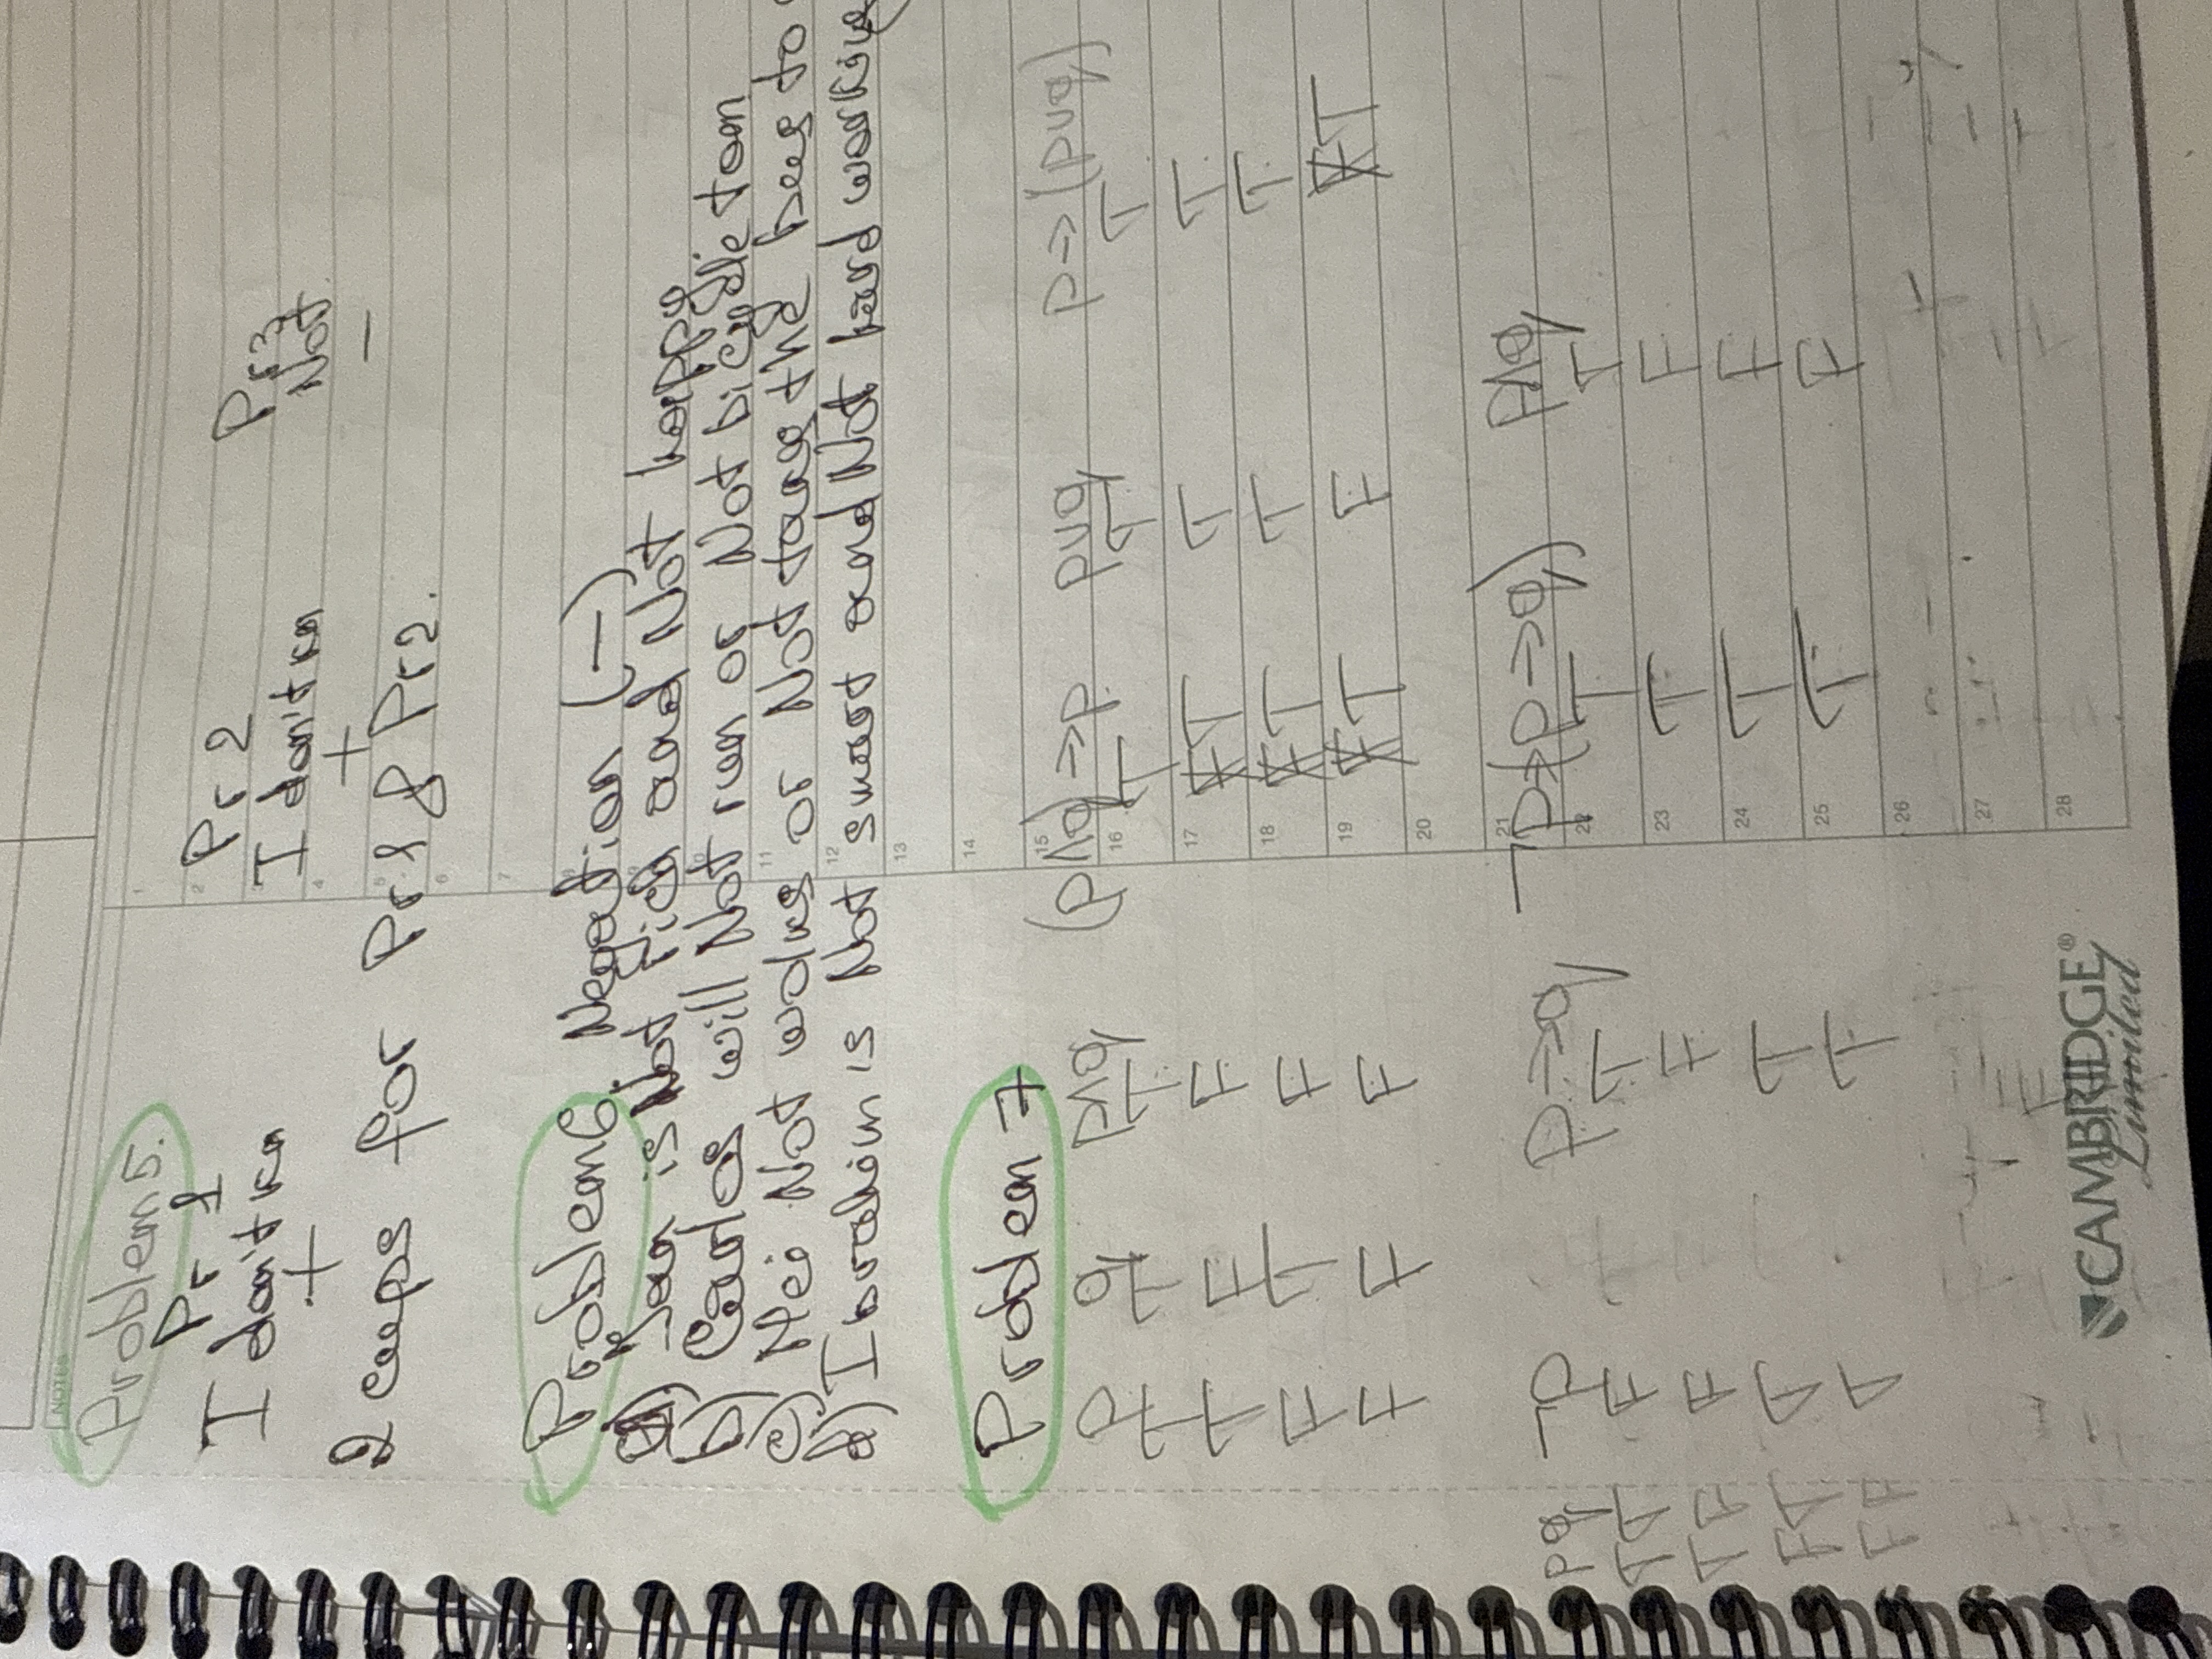 NOTES
Problem 5.
Pr 1 Pr 2 Pr 3
I don't kn I don't kn Not
+ + −
2 cups for Pr1 & Pr2.
Problem 6. Negation (−)
a) Jan is Not rich and Not happy.
b) Carlos will Not run or Not bicycle tom
c) Mei Not walks or Not takes the bus to
d) Ibrahim is Not smart and Not hard working
Problem 7
p q p∧q (p∧q)→p p∨q p→(p∨q)
T T T T T T
T F F T T T
F T F T T T
F F F T F T
p q ¬p p→q ¬p→(p→q) p∧q
T T F T T T
T F F F T F
F T T T T F
F F T T T F
1
2
4
5
6
7
9
11
12
13
14
15
16
17
18
19
20
21
22
23
24
25
26
27
28
CAMBRIDGE®
Limited